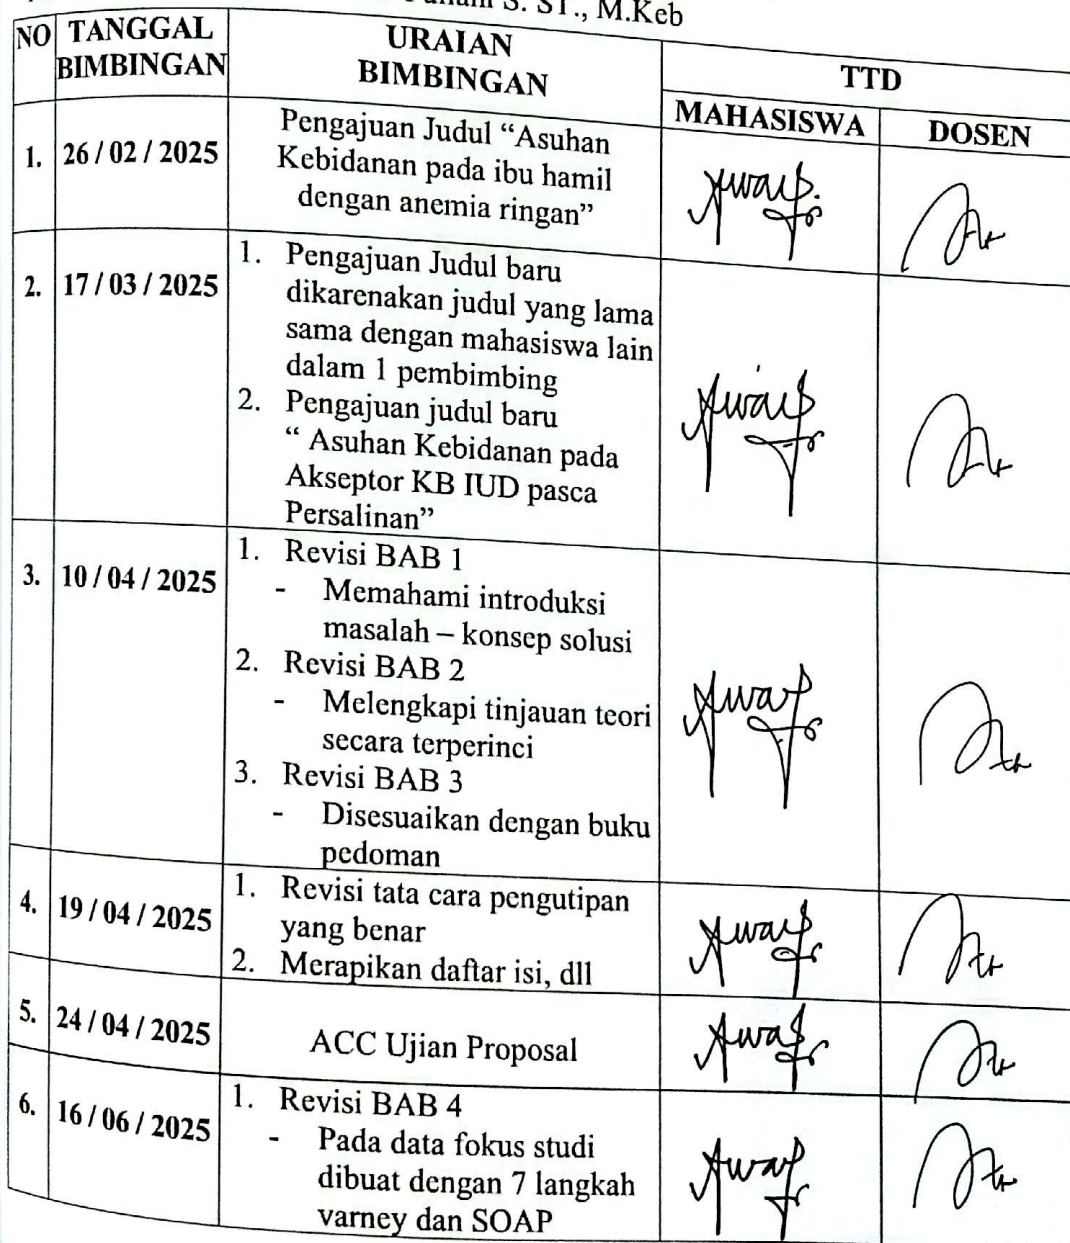 S. ST., M.Keb
NO
TANGGAL
BIMBINGAN
URAIAN
BIMBINGAN
TTD
MAHASISWA
DOSEN
1.
26 / 02 / 2025
Pengajuan Judul “Asuhan
Kebidanan pada ibu hamil
dengan anemia ringan”
2.
17 / 03 / 2025
1. Pengajuan Judul baru
dikarenakan judul yang lama
sama dengan mahasiswa lain
dalam 1 pembimbing
2. Pengajuan judul baru
“ Asuhan Kebidanan pada
Akseptor KB IUD pasca
Persalinan”
3.
10 / 04 / 2025
1. Revisi BAB 1
- Memahami introduksi
masalah – konsep solusi
2. Revisi BAB 2
- Melengkapi tinjauan teori
secara terperinci
3. Revisi BAB 3
- Disesuaikan dengan buku
pedoman
4.
19 / 04 / 2025
1. Revisi tata cara pengutipan
yang benar
2. Merapikan daftar isi, dll
5.
24 / 04 / 2025
ACC Ujian Proposal
6.
16 / 06 / 2025
1. Revisi BAB 4
- Pada data fokus studi
dibuat dengan 7 langkah
varney dan SOAP